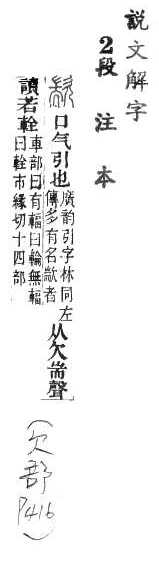 說文解字
2段注本
歂 口气引也 廣韵引字林同左傳多有名歂者 从欠耑聲
讀若輇 車部曰有輻曰輪無輻曰輇市緣切十四部
(欠部 P416)